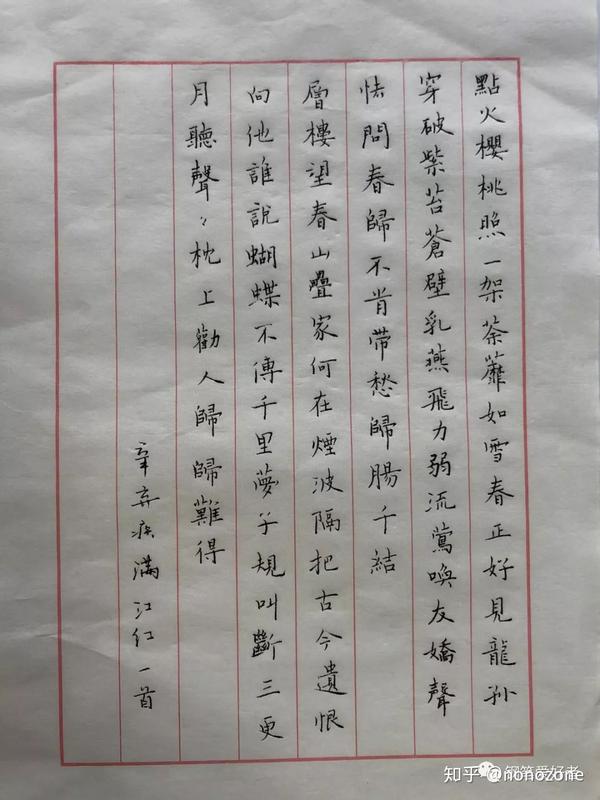 點火櫻桃照一架荼蘼如雪春正好見龍孙
穿破紫苔蒼壁乳燕飛力弱流鶯喚友嬌聲
怯問春歸不肯带愁歸腸千結
層樓望春山疊家何在煙波隔把古今遺恨
向他誰說蝴蝶不傳千里夢子規叫斷三更
月聽聲〻枕上勸人歸歸難得
辛弃疾满江红一首
钢笔爱好者
知乎 @nonozone